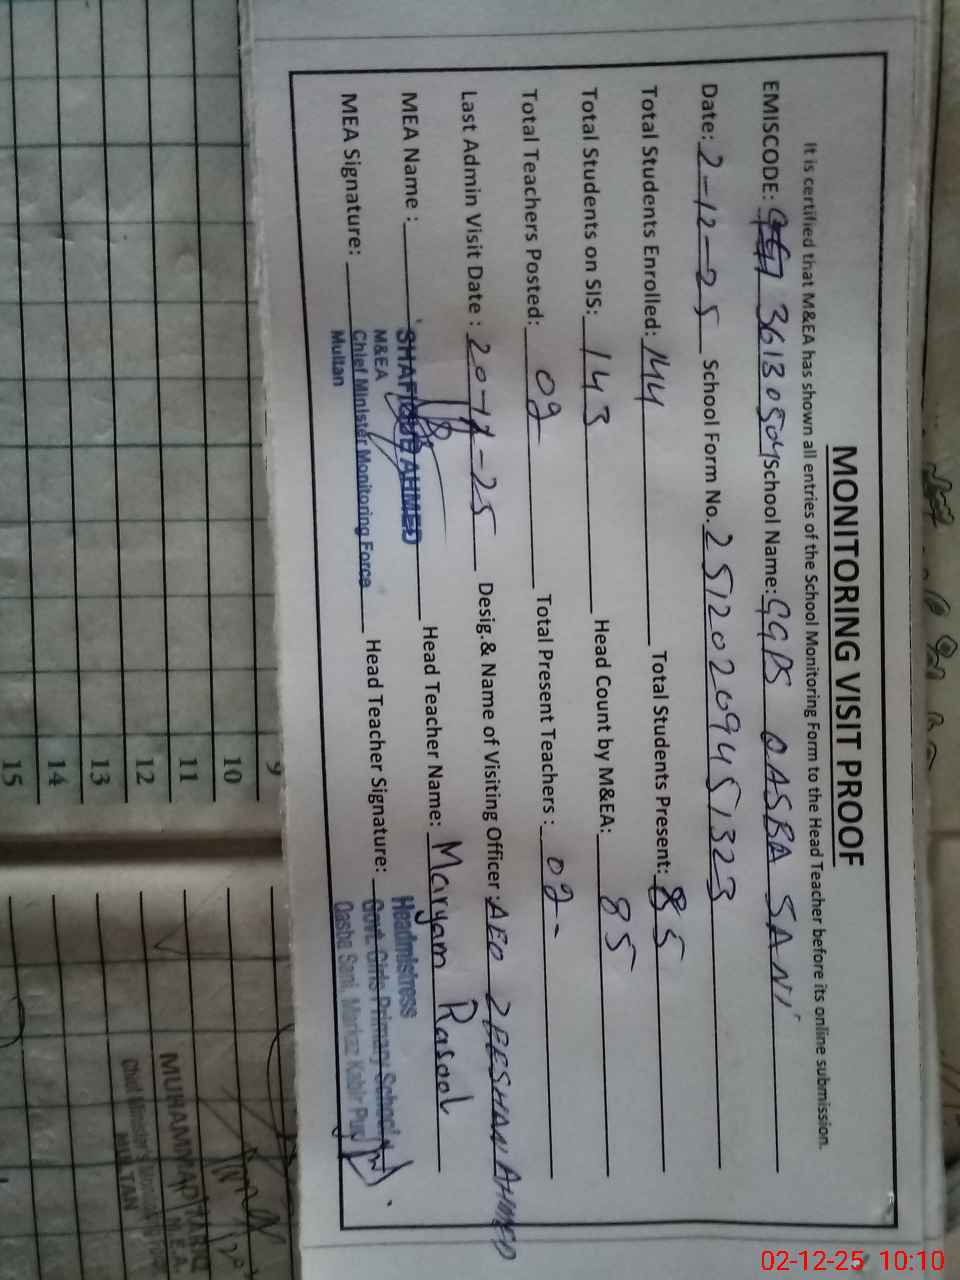 MONITORING VISIT PROOF
It is certified that M&EA has shown all entries of the School Monitoring Form to the Head Teacher before its online submission.
EMISCODE: 36130504 School Name: GGPS QASBA SANI
Date: 2-12-25 School Form No. 25120209451323
Total Students Enrolled: 144 Total Students Present: 85
Total Students on SIS: 143 Head Count by M&EA: 85
Total Teachers Posted: 02 Total Present Teachers: 02
Last Admin Visit Date: 20-11-25 Desig.& Name of Visiting Officer: AEO ZEESHAN AHMED
MEA Name: SHAFIQUE AHMED Head Teacher Name: Maryam Rasool
M&EA
MEA Signature: Chief Minister Monitoring Force Head Teacher Signature:
Multan
Headmistress
Govt. Girls Primary School
Qasba Sani, Markaz Kabir Pur
9
10
11
12
13
14
15
MUHAMMAD TARIQ
M.E.A.
MULTAN
02-12-25 10:10